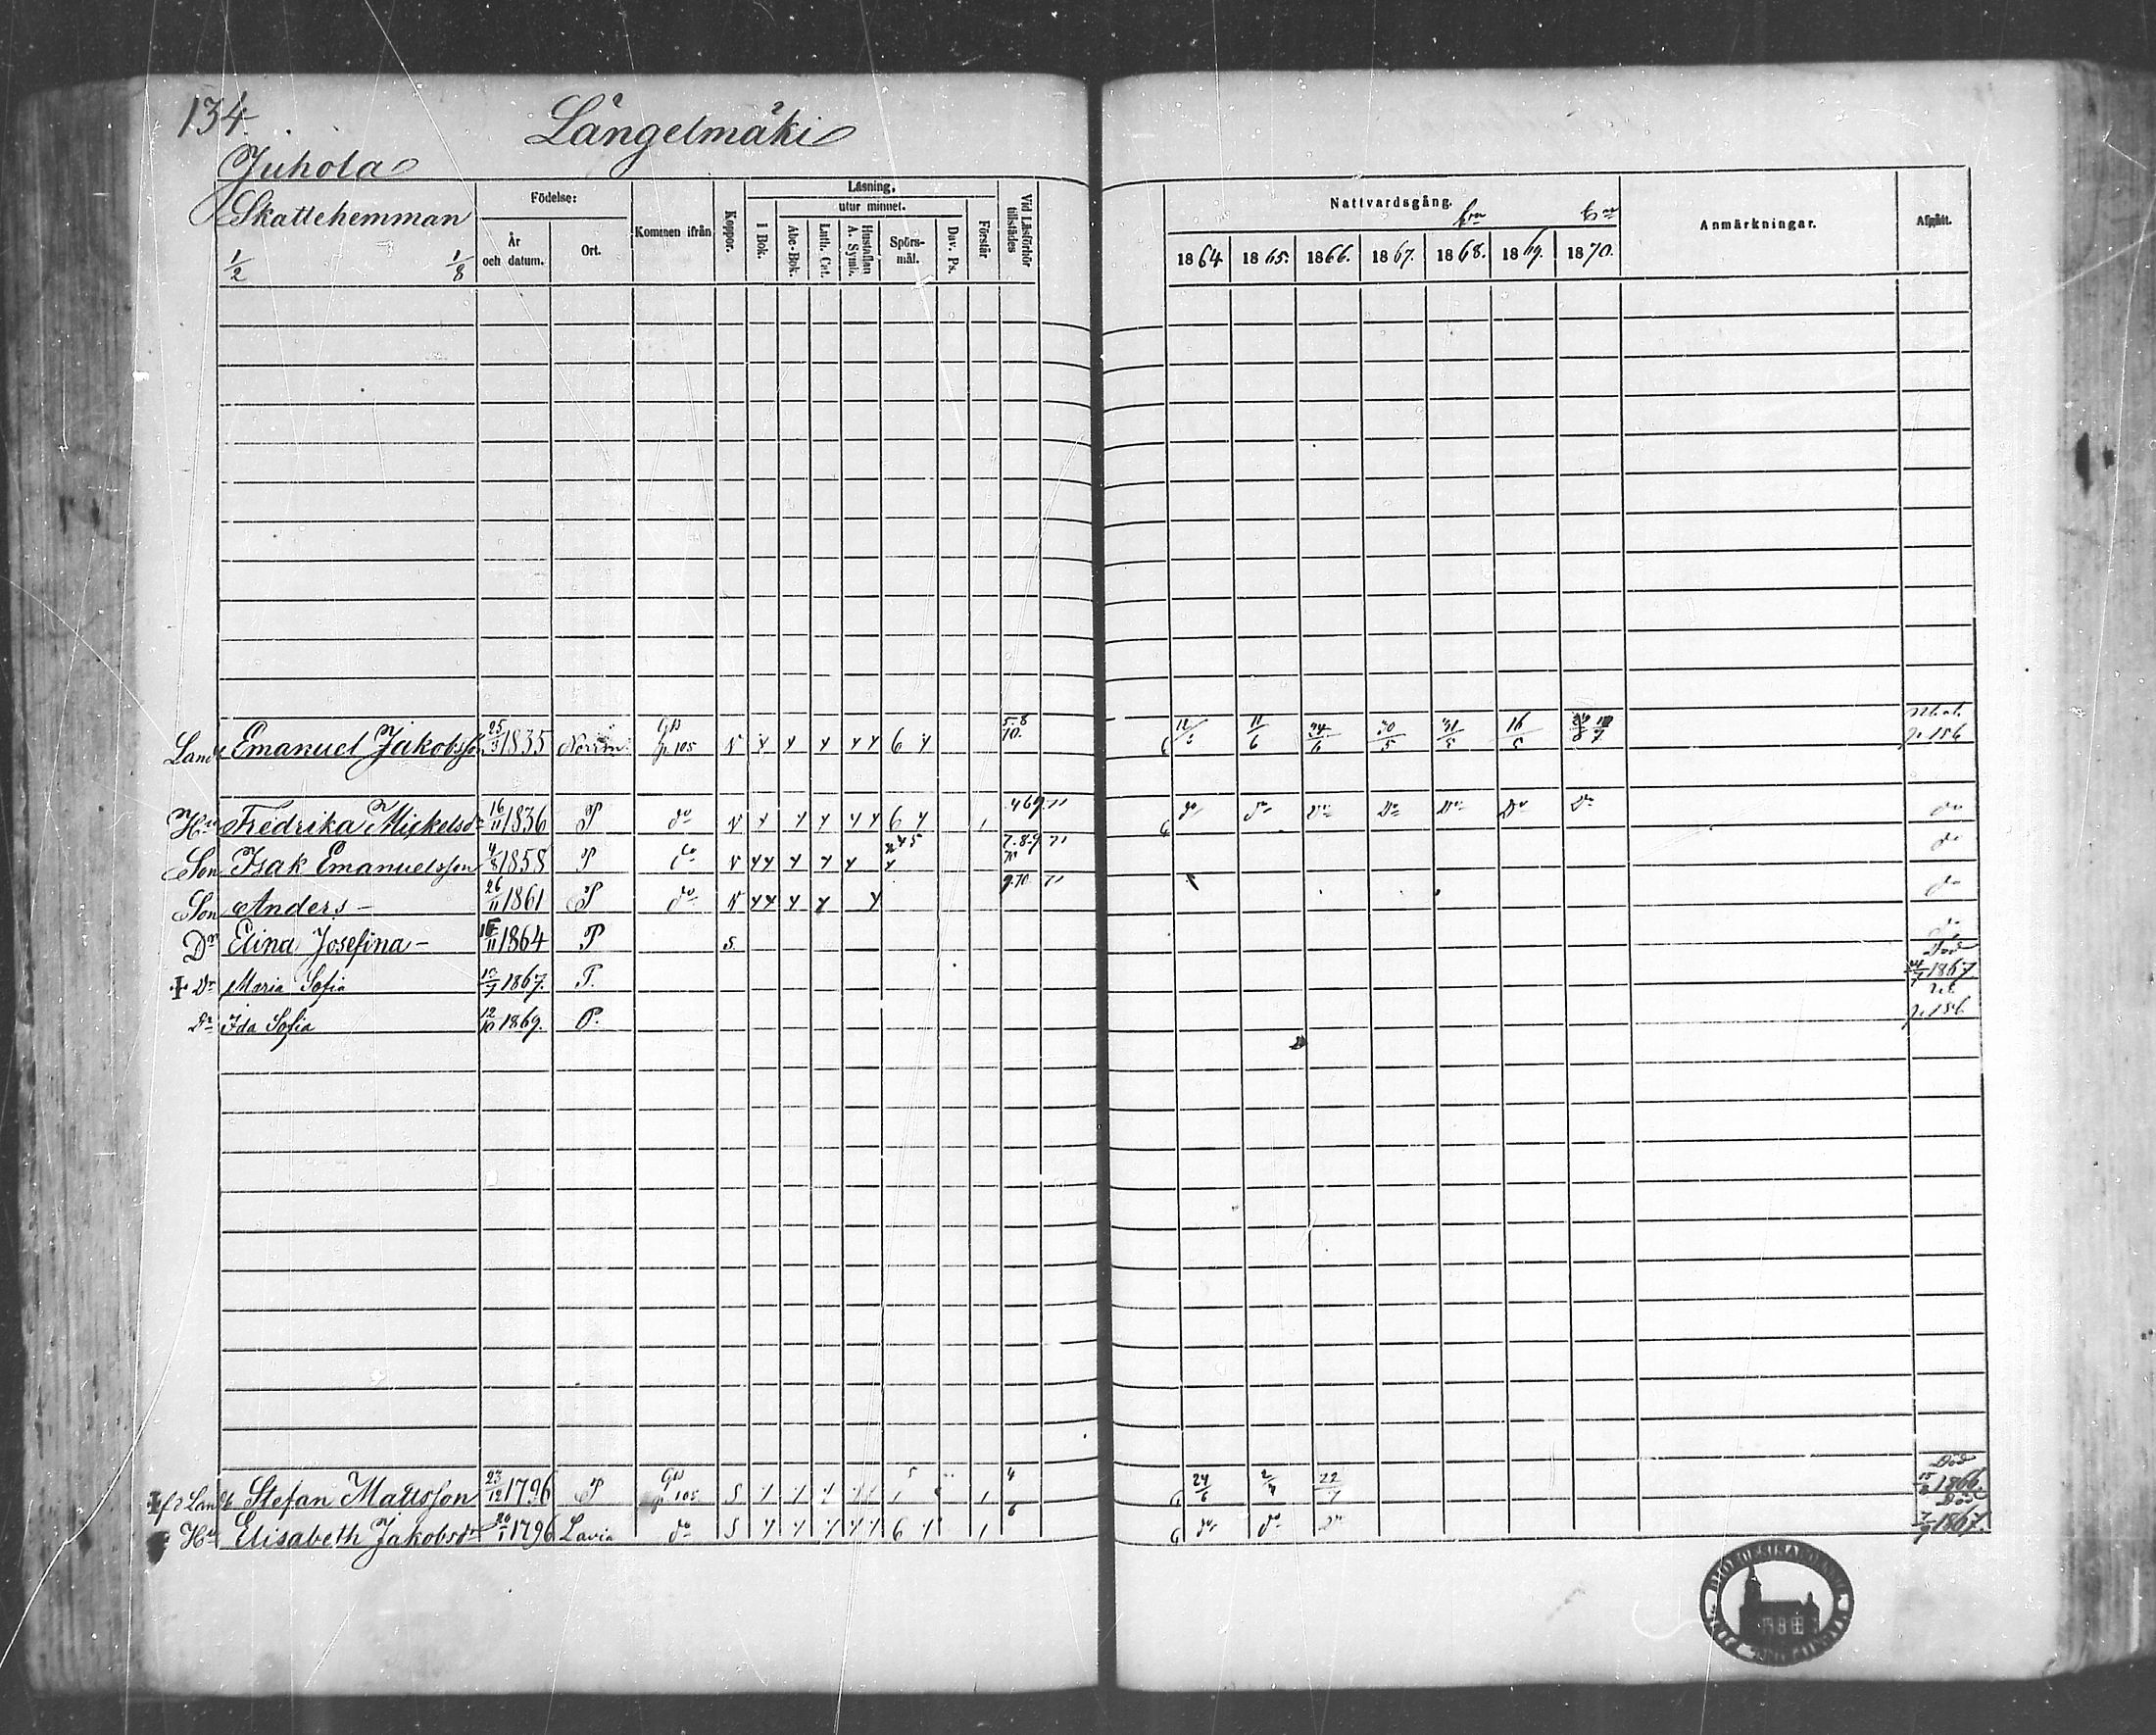 134.
Långelmäki
Juhola
Skattehemman
1/2 1/8
Födelse:
År och datum.
Ort.
Kommen ifrån
Koppor.
Läsning,
utur minnet.
I Bok.
Abc-Bok.
Luth. Cat.
Hustaflan A. Symb.
Spörsmål.
Dav. Ps.
Förstår
Vid Läsförhör tillstädes
Nattvardsgång.
1864 1865. 1866. 1867. 1868. 1869. 1870.
Anmärkningar.
Afgått.
Emanuel Jakobsson 25/3 1835 p 105 6 5.8 10. 11/6 30/5 31/5 p. 156
Hu Fredrika Mickelsdr 16/11 1836 P do 6 1 do do do do do do do do
Son Isak Emanuelsson 4/8 1858 P do 7.8.9 71 do
Son Anders — 26/11 1861 P do 9.70 71 do
Dr Elina Josefina — 1864 P s
Dr Maria Sofia 1867. P. Död 1867
Dr Ida Sofia 12/10 1869. P. p. 156
Stefan Mattsson 23/12 1796 P p 105 S 1 4 24/6 2/7 22/7 Död 1866.
Hu Elisabeth Jakobsdr 20/1 1796 Lavia do S 6 1 6 do do do Död 7/9 1867.